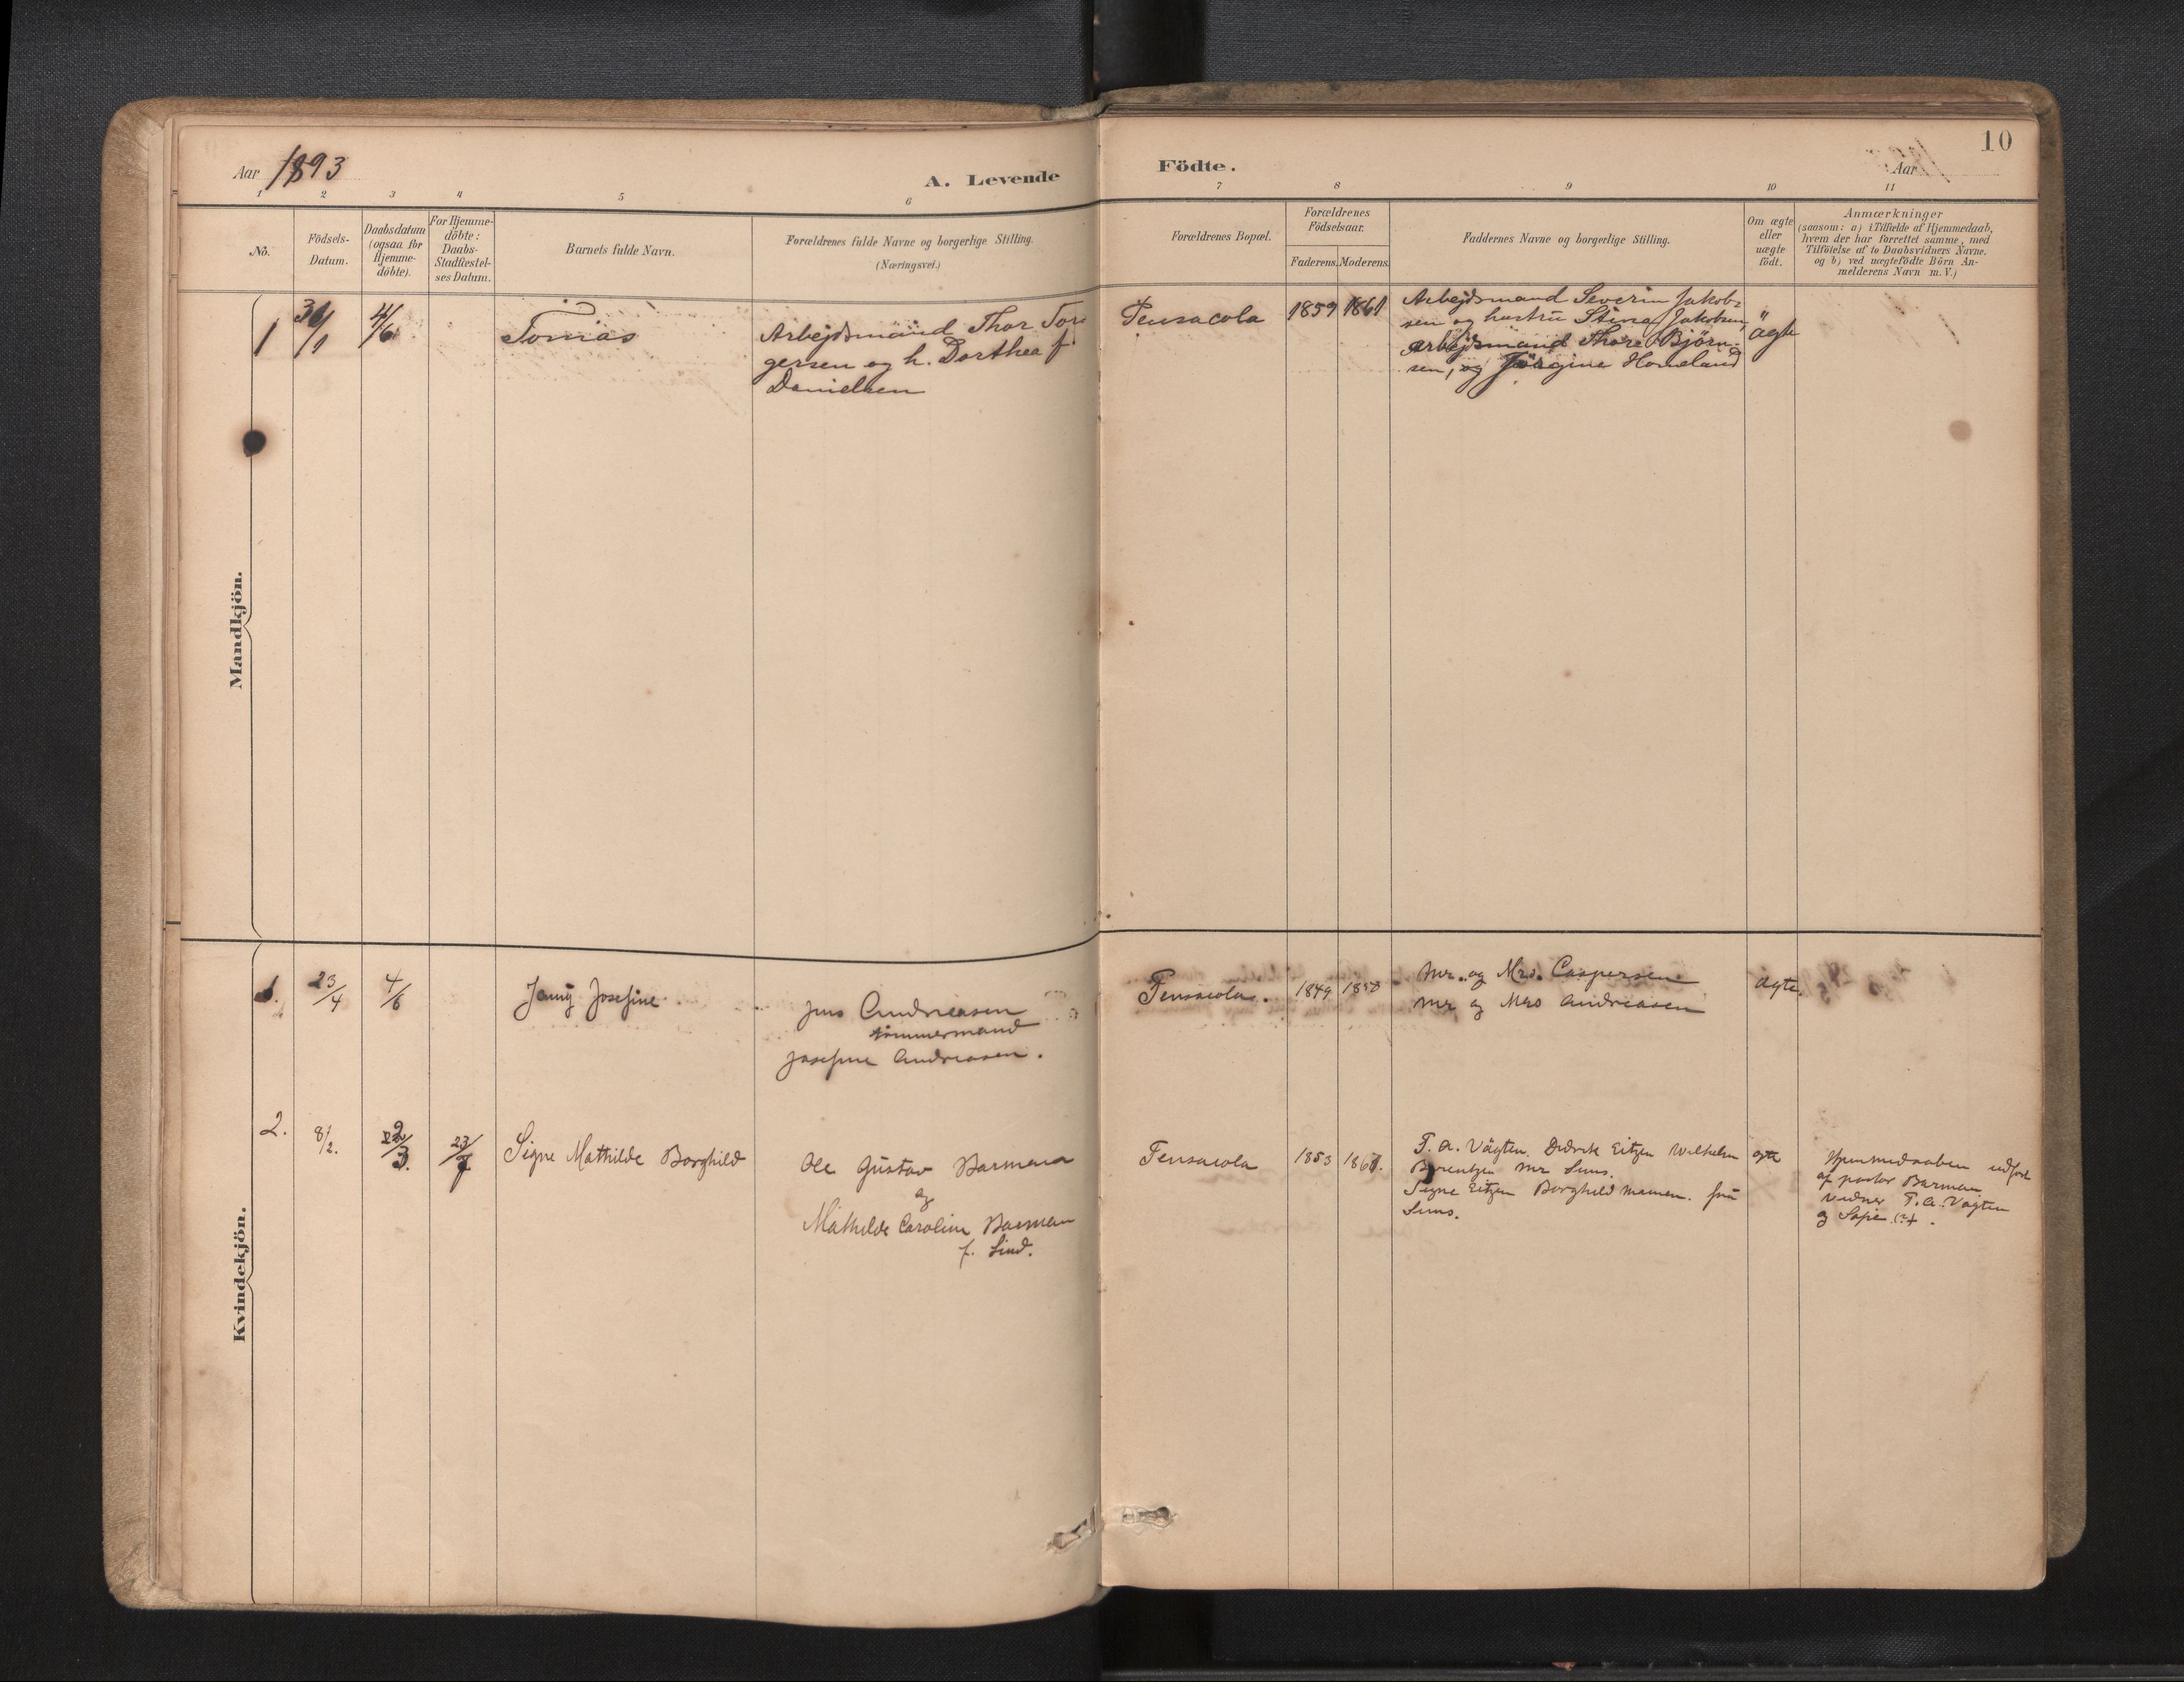 Aar 1893
A. Levende
Födte.
Aar
10
1 2 3 4 5 6 7 8 9 10 11
No.
Födsels-
Datum.
Daabsdatum
(ogsaa for
Hjemme-
döbte).
For Hjemme-
döbte:
Daabs-
Stadfæstel-
ses Datum.
Barnets fulde Navn.
Forældrenes fulde Navne og borgerlige Stilling.
(Næringsvei.)
Forældrenes Bopæl.
Forældrenes
Födselsaar.
Faderens. Moderens.
Faddernes Navne og borgerlige Stilling.
Om ægte
eller
uægte
födt.
Anmærkninger
(saasom: a) i Tilfælde af Hjemmedaab,
hvem der har forrettet samme, med
Tilföielse af to Daabsvidners Navne.
og b) ved uægtefödte Börn An-
melderens Navn m. V.)
Mandkjön.
1
4/6
Tomas
Arbejdsmand Thor Tor
gersen og h. Dorthea f.
Danielsen
Pensacola
1859 1861
Arbejdsmand Severin Jakob-
sen og hustru Stina Jakobsen,
Arbejdsmand Thore Bjørn-
sen, og Jörgine Homeland
ägte
Kvindekjön.
1.
23/4
4/6
Jenny Josefine
Jens Andreasen
tömmermand
Josefine Andreasen.
Pensacola.
1849
Mr. og Mrs. Caspersen
Mr og Mrs Andreasen
ägte.
2.
8/2.
23/7
Signe Mathilde Borghild
Ole Gustav Barman
og
Mathilde Caroline Barman
f. Lind.
Pensacola
1853 1861.
T. A. Vägten. Didrik Eitzen Wilhelm
Berentzen Mr
Signe Eitzen Borghild Mamen. fru
ægte
Hjemmedaaben udført
af pastor Barman
vidner T. A. Vägten
og